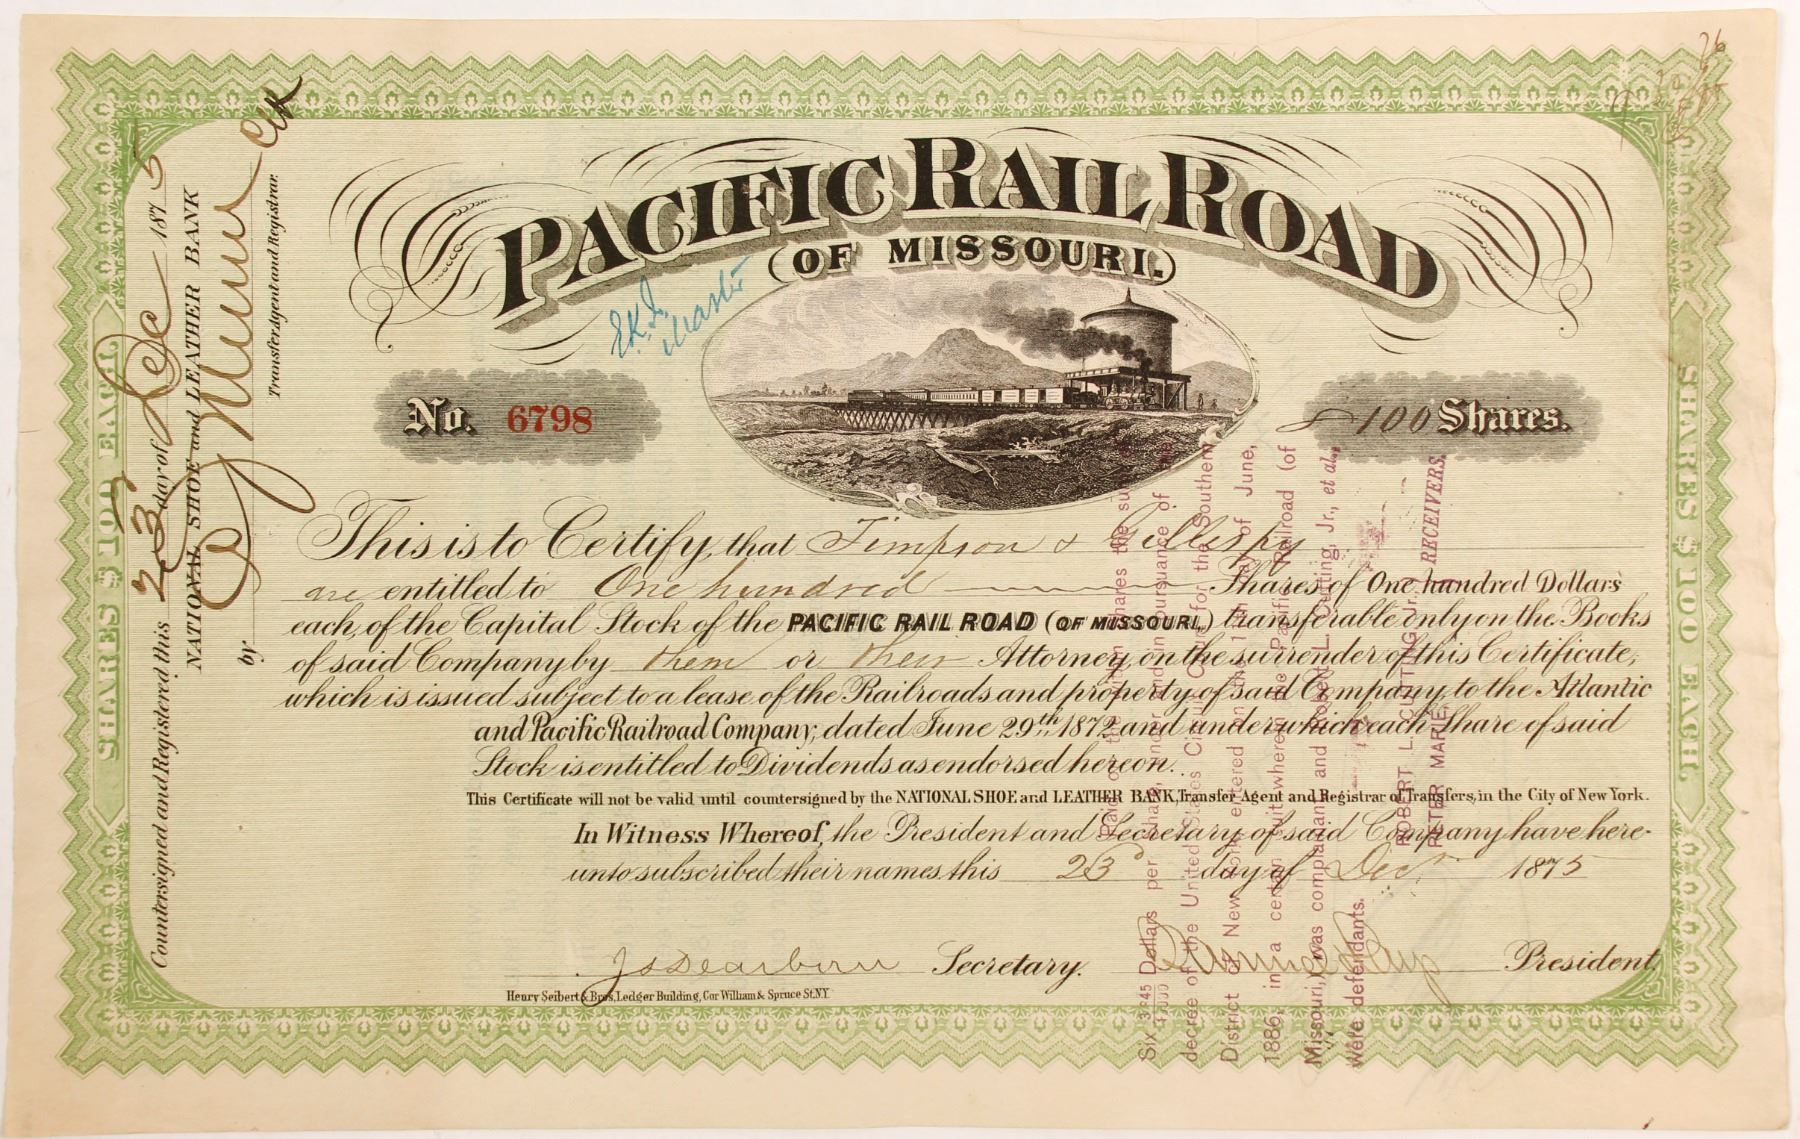 PACIFIC RAIL ROAD
(OF MISSOURI.)
No. 6798
100 Shares.
This is to Certify, that Timpson & Gillespy
are entitled to One hundred Shares of One hundred Dollars
each, of the Capital Stock of the PACIFIC RAIL ROAD (OF MISSOURI,) transferable only on the Books
of said Company by them or their Attorney, on the surrender of this Certificate,
which is issued subject to a lease of the Railroads and property of said Company, to the Atlantic
and Pacific Railroad Company; dated June 29th 1872 and under which each Share of said
Stock is entitled to Dividends as endorsed hereon.
This Certificate will not be valid until countersigned by the NATIONAL SHOE and LEATHER BANK, Transfer Agent and Registrar of Transfers, in the City of New York.
In Witness Whereof, the President and Secretary of said Company have here-
unto subscribed their names this 23d day of Dec 1875
Secretary.
President.
Henry Seibert & Bros, Ledger Building, Cor William & Spruce St. N.Y.
SHARES $100 EACH
Countersigned and Registered this 23 day of Dec 1875
NATIONAL SHOE and LEATHER BANK
by
Transfer Agent and Registrar.
SHARES $100 EACH
Paid on the within shares the sum of
Six Dollars per share, under and in pursuance of the
decree of the United States Circuit Court for the Southern
District of New York, entered on the day of June,
1886, in a certain suit wherein the Pacific Railroad (of
Missouri, was complainant and Robert L. Cutting, Jr., et al.,
were defendants.
ROBERT L. CUTTING, Jr.
PETER MARIE,
RECEIVERS.